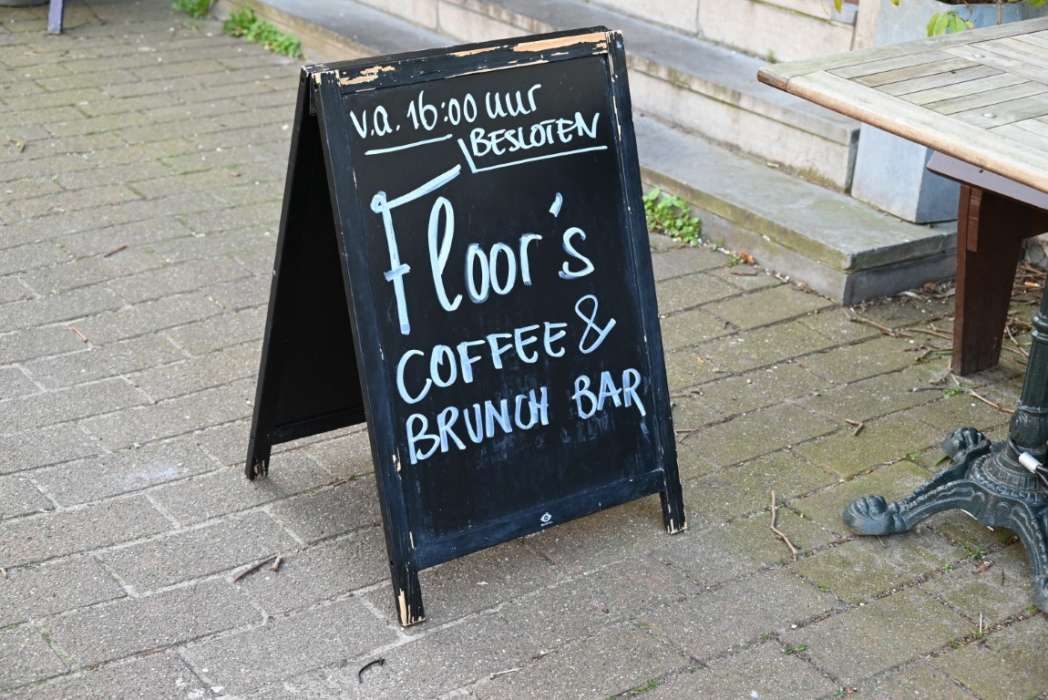 v.a. 16:00 uur
BESLOTEN
Floor's
COFFEE &
BRUNCH BAR